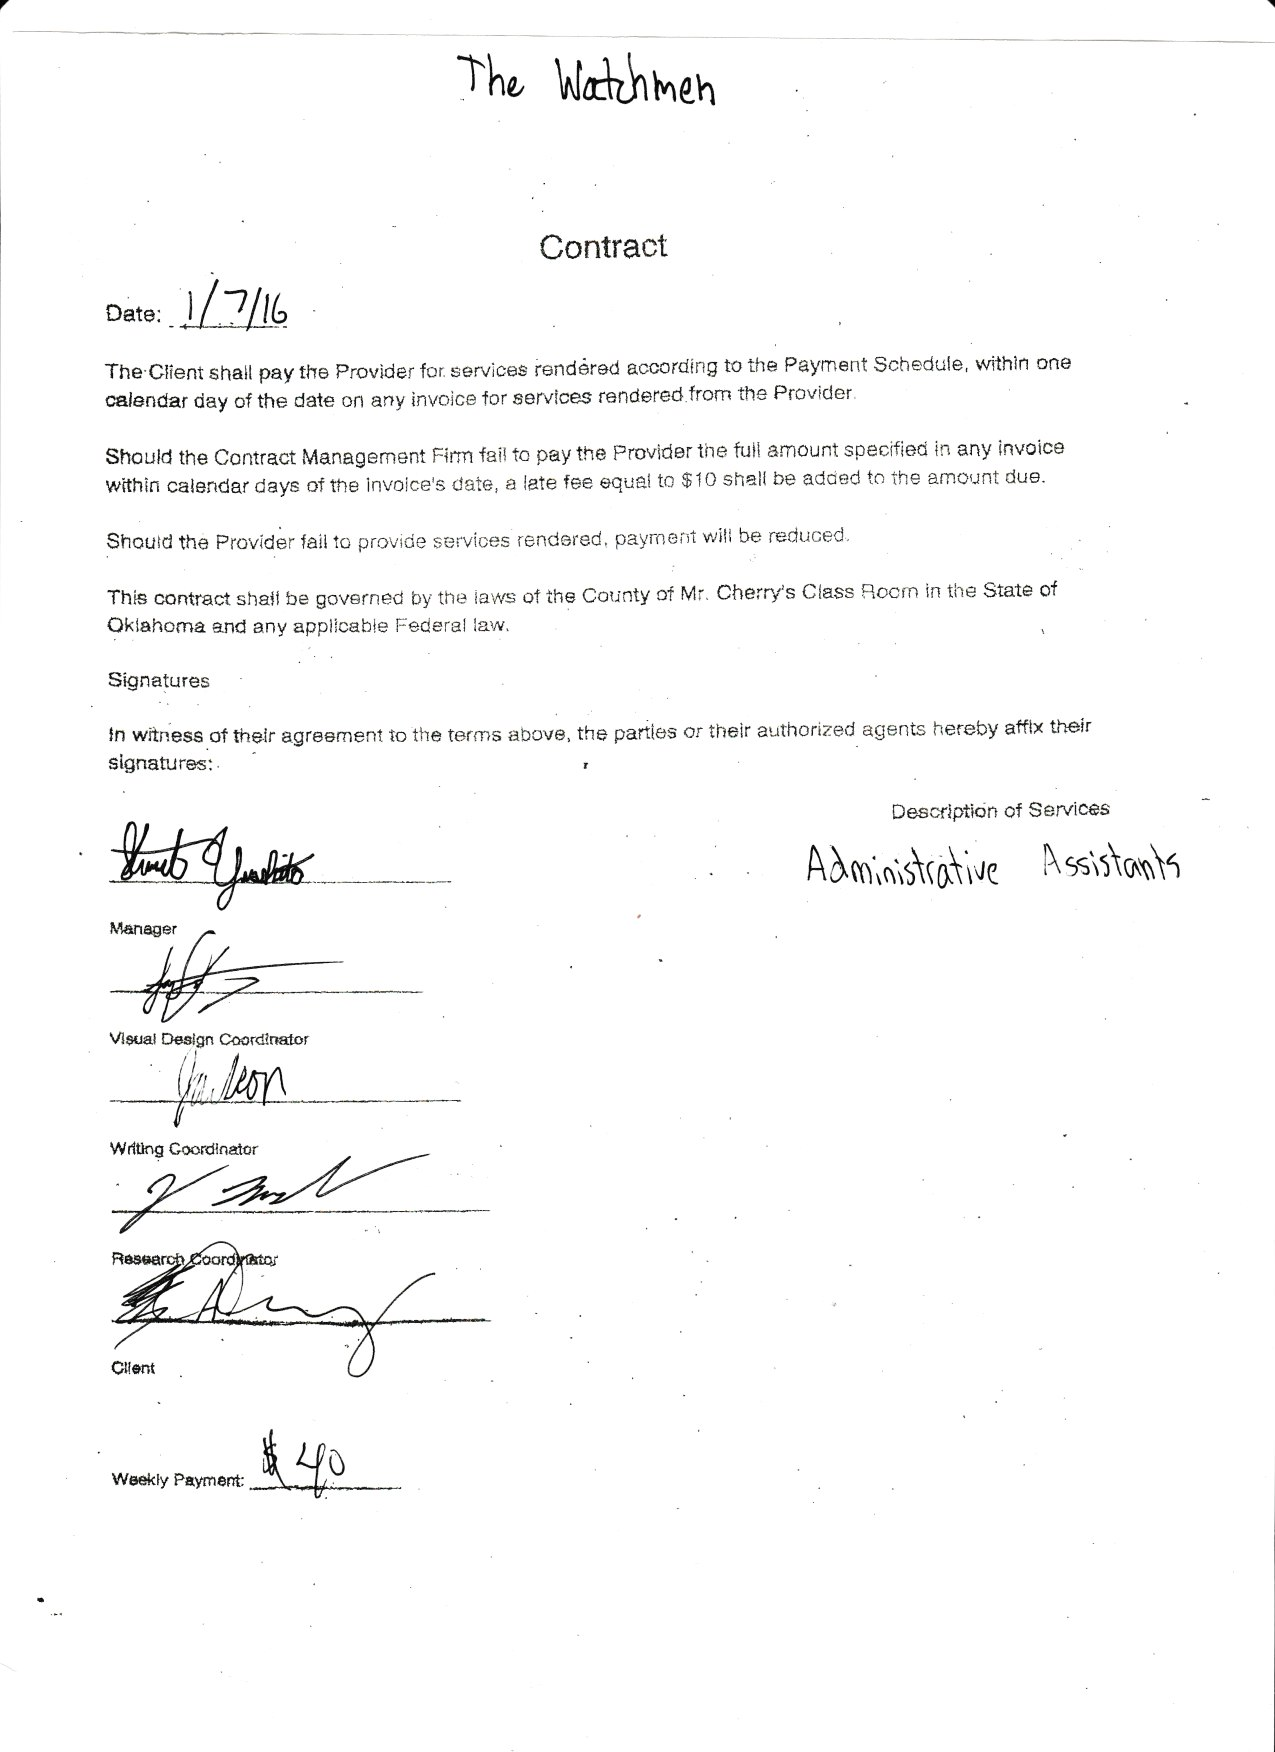 The Watchmen
Contract
Date: 1/7/16
The Client shall pay the Provider for services rendered according to the Payment Schedule, within one
calendar day of the date on any invoice for services rendered from the Provider.
Should the Contract Management Firm fail to pay the Provider the full amount specified in any invoice
within calendar days of the invoice's date, a late fee equal to $10 shall be added to the amount due.
Should the Provider fail to provide services rendered, payment will be reduced.
This contract shall be governed by the laws of the County of Mr. Cherry's Class Room in the State of
Oklahoma and any applicable Federal law.
Signatures
In witness of their agreement to the terms above, the parties or their authorized agents hereby affix their
signatures:
Description of Services
Administrative Assistants
Manager
Visual Design Coordinator
Writing Coordinator
Research Coordinator
Client
Weekly Payment: $ 40